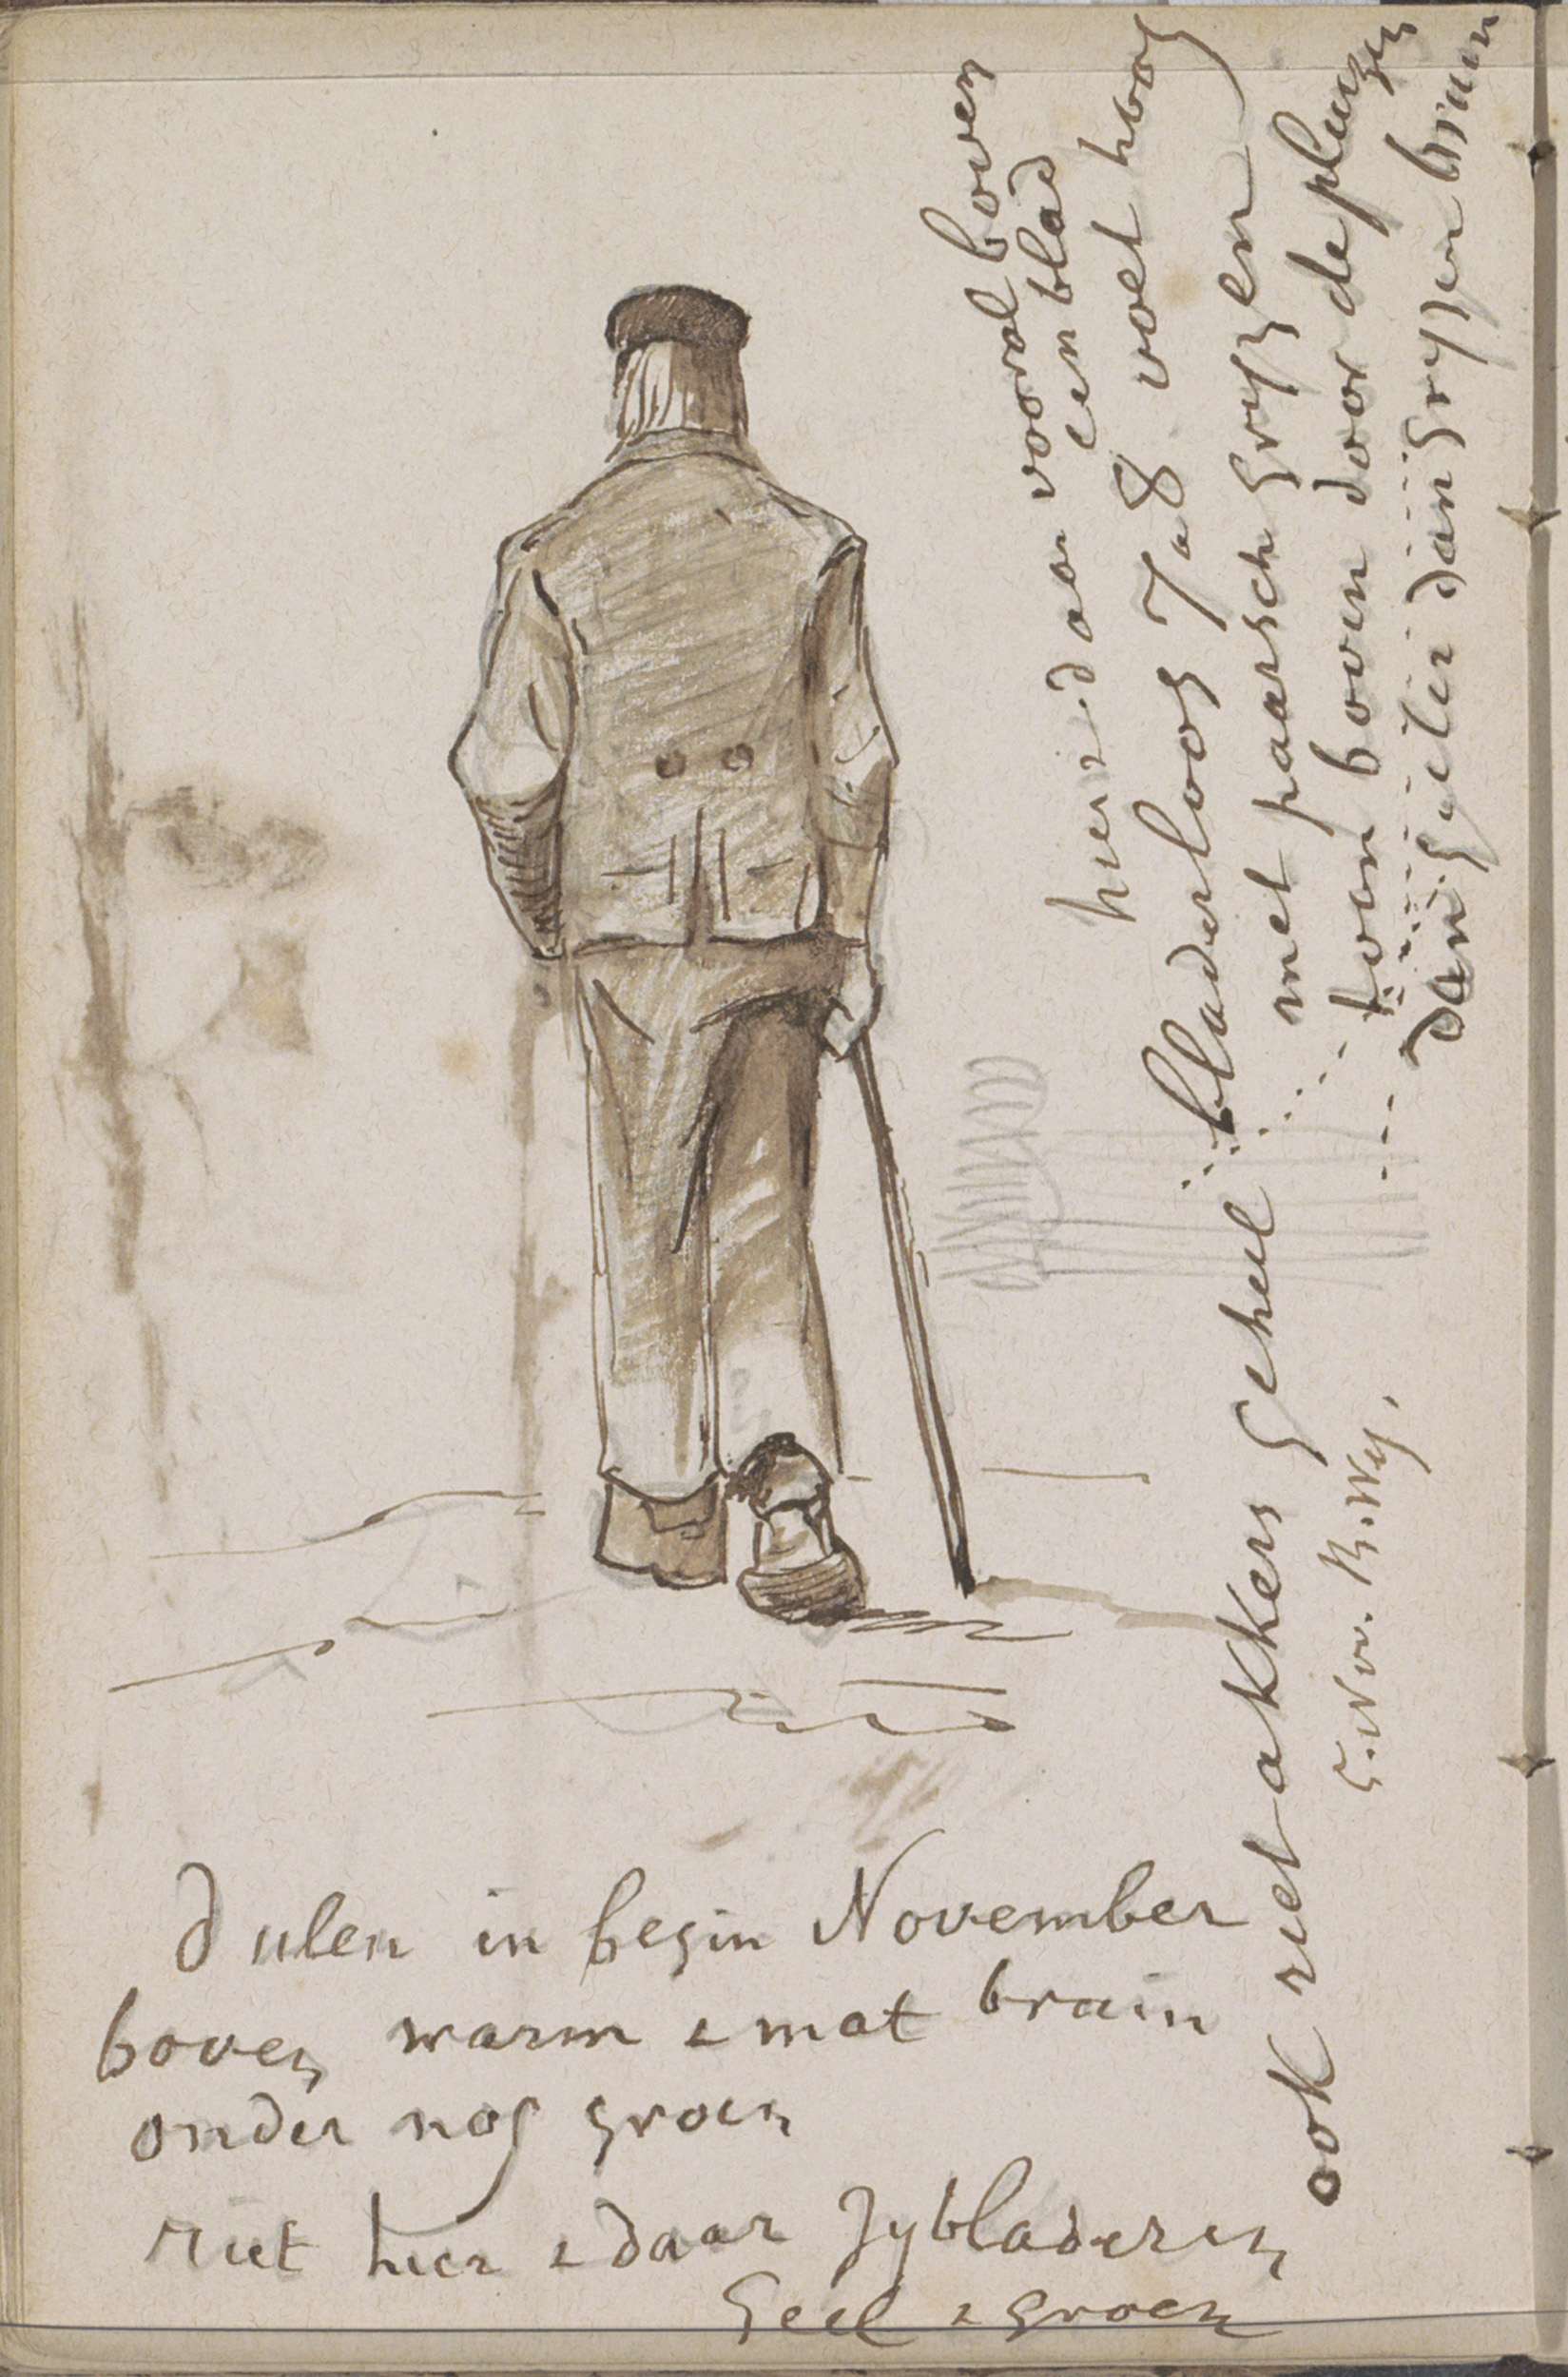 dulen in begin November
boven warm & mat bruin
onder nog groen
riet hier & daar zybladeren
geel & groen
ook riet akkers geheel bladerloos 7 a 8 voet hoog
hier & daar vooral boven
een blad
met paarsch gryzen
toon boven door de pluizen
dan geler dan gryzen bruin
5 Nov.